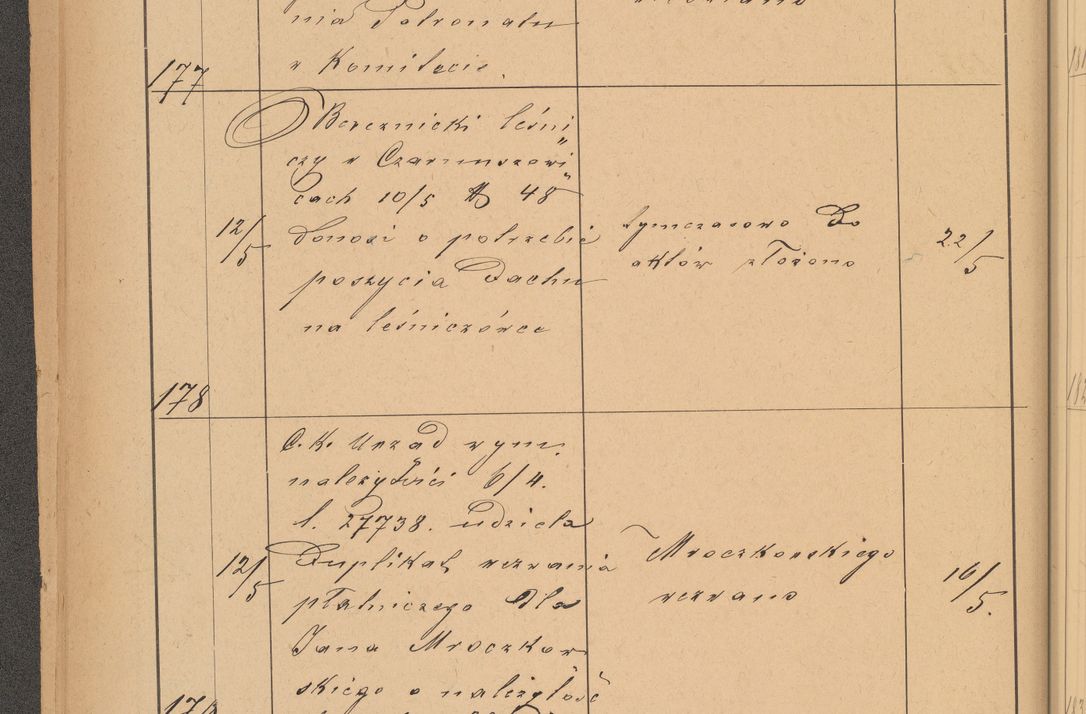 nia Patronatu
w Komitecie.
177
Berecznicki leśni
czy w Czarnuszowi
cach 10/5 N 48
12/5
donosi o potrzebie
poszycia Dachu
na leśniczówce
tymczasowo Do
aktów złożono
22/5
178
C. K. Urząd wym.
należytości 6/4.
l. 27738. udziela
12/5
Duplikat wezwania
płatniczego dla
Jana Mroczkow
skiego o należytość
Mroczkowskiego
wezwano
16/5.